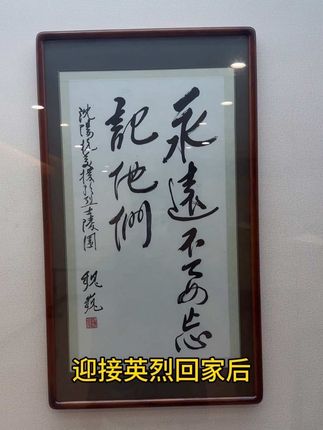 永遠不要忘
記他們
沈陽抗美援朝烈士陵園
魏巍
迎接英烈回家后